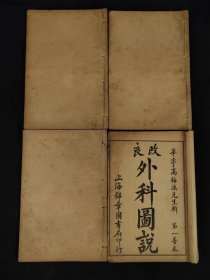 華亭高梅溪先生輯　第一善本
改良
外科圖說
上海錦章圖書局印行